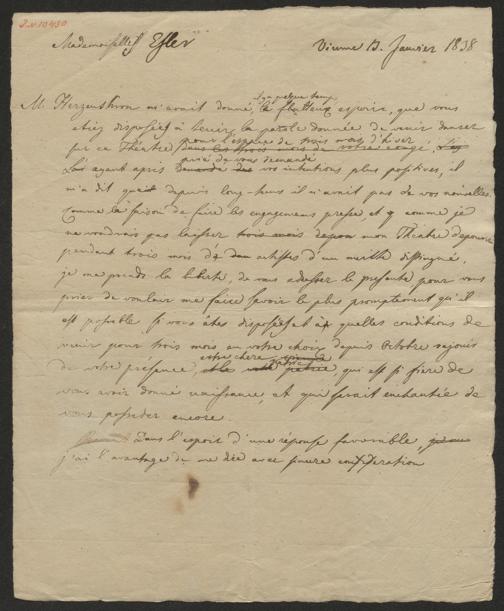 J.N. 10430
Mademoiselles Esler Vienne 13. Janvier 1838
il y a quelque temps
M. Herzenskron m'avait donné, le flatteux espoir, que vous
étiez disposées à tenir la parole donnée de venir danser
pour l'espace de trois mois d'hiver
sur ce Théâtre dans les trois mois de votre congé.
prié de vous demandé
Lui ayant après vos intentions plus positives, il
m'a dit que depuis long-tems il n'avait pas de vos nouvelles.
Comme la saison de faire les engagemens presse, et comme je
ne voudrais pas laisser trois mois mon Théatre dépourvu
pendant trois mois d' artistes d'un mérite distingué,
je me prends la liberté, de vous adresser la présente pour vous
prier de vouloir me faire savoir le plus promptement qu'il
est possible, si vous êtes disposées et à quelles conditions de
venir pour trois mois au votre choix depuis Octobre
votre chere patrie
de votre présence, patrie, qui est si fiere de
vous avoir donné naissance, et qui serait enchantée de
vous posseder encore.
Dans l'espoir d'une réponse favorable,
j'ai l'avantage de me dire avec sincere consideration